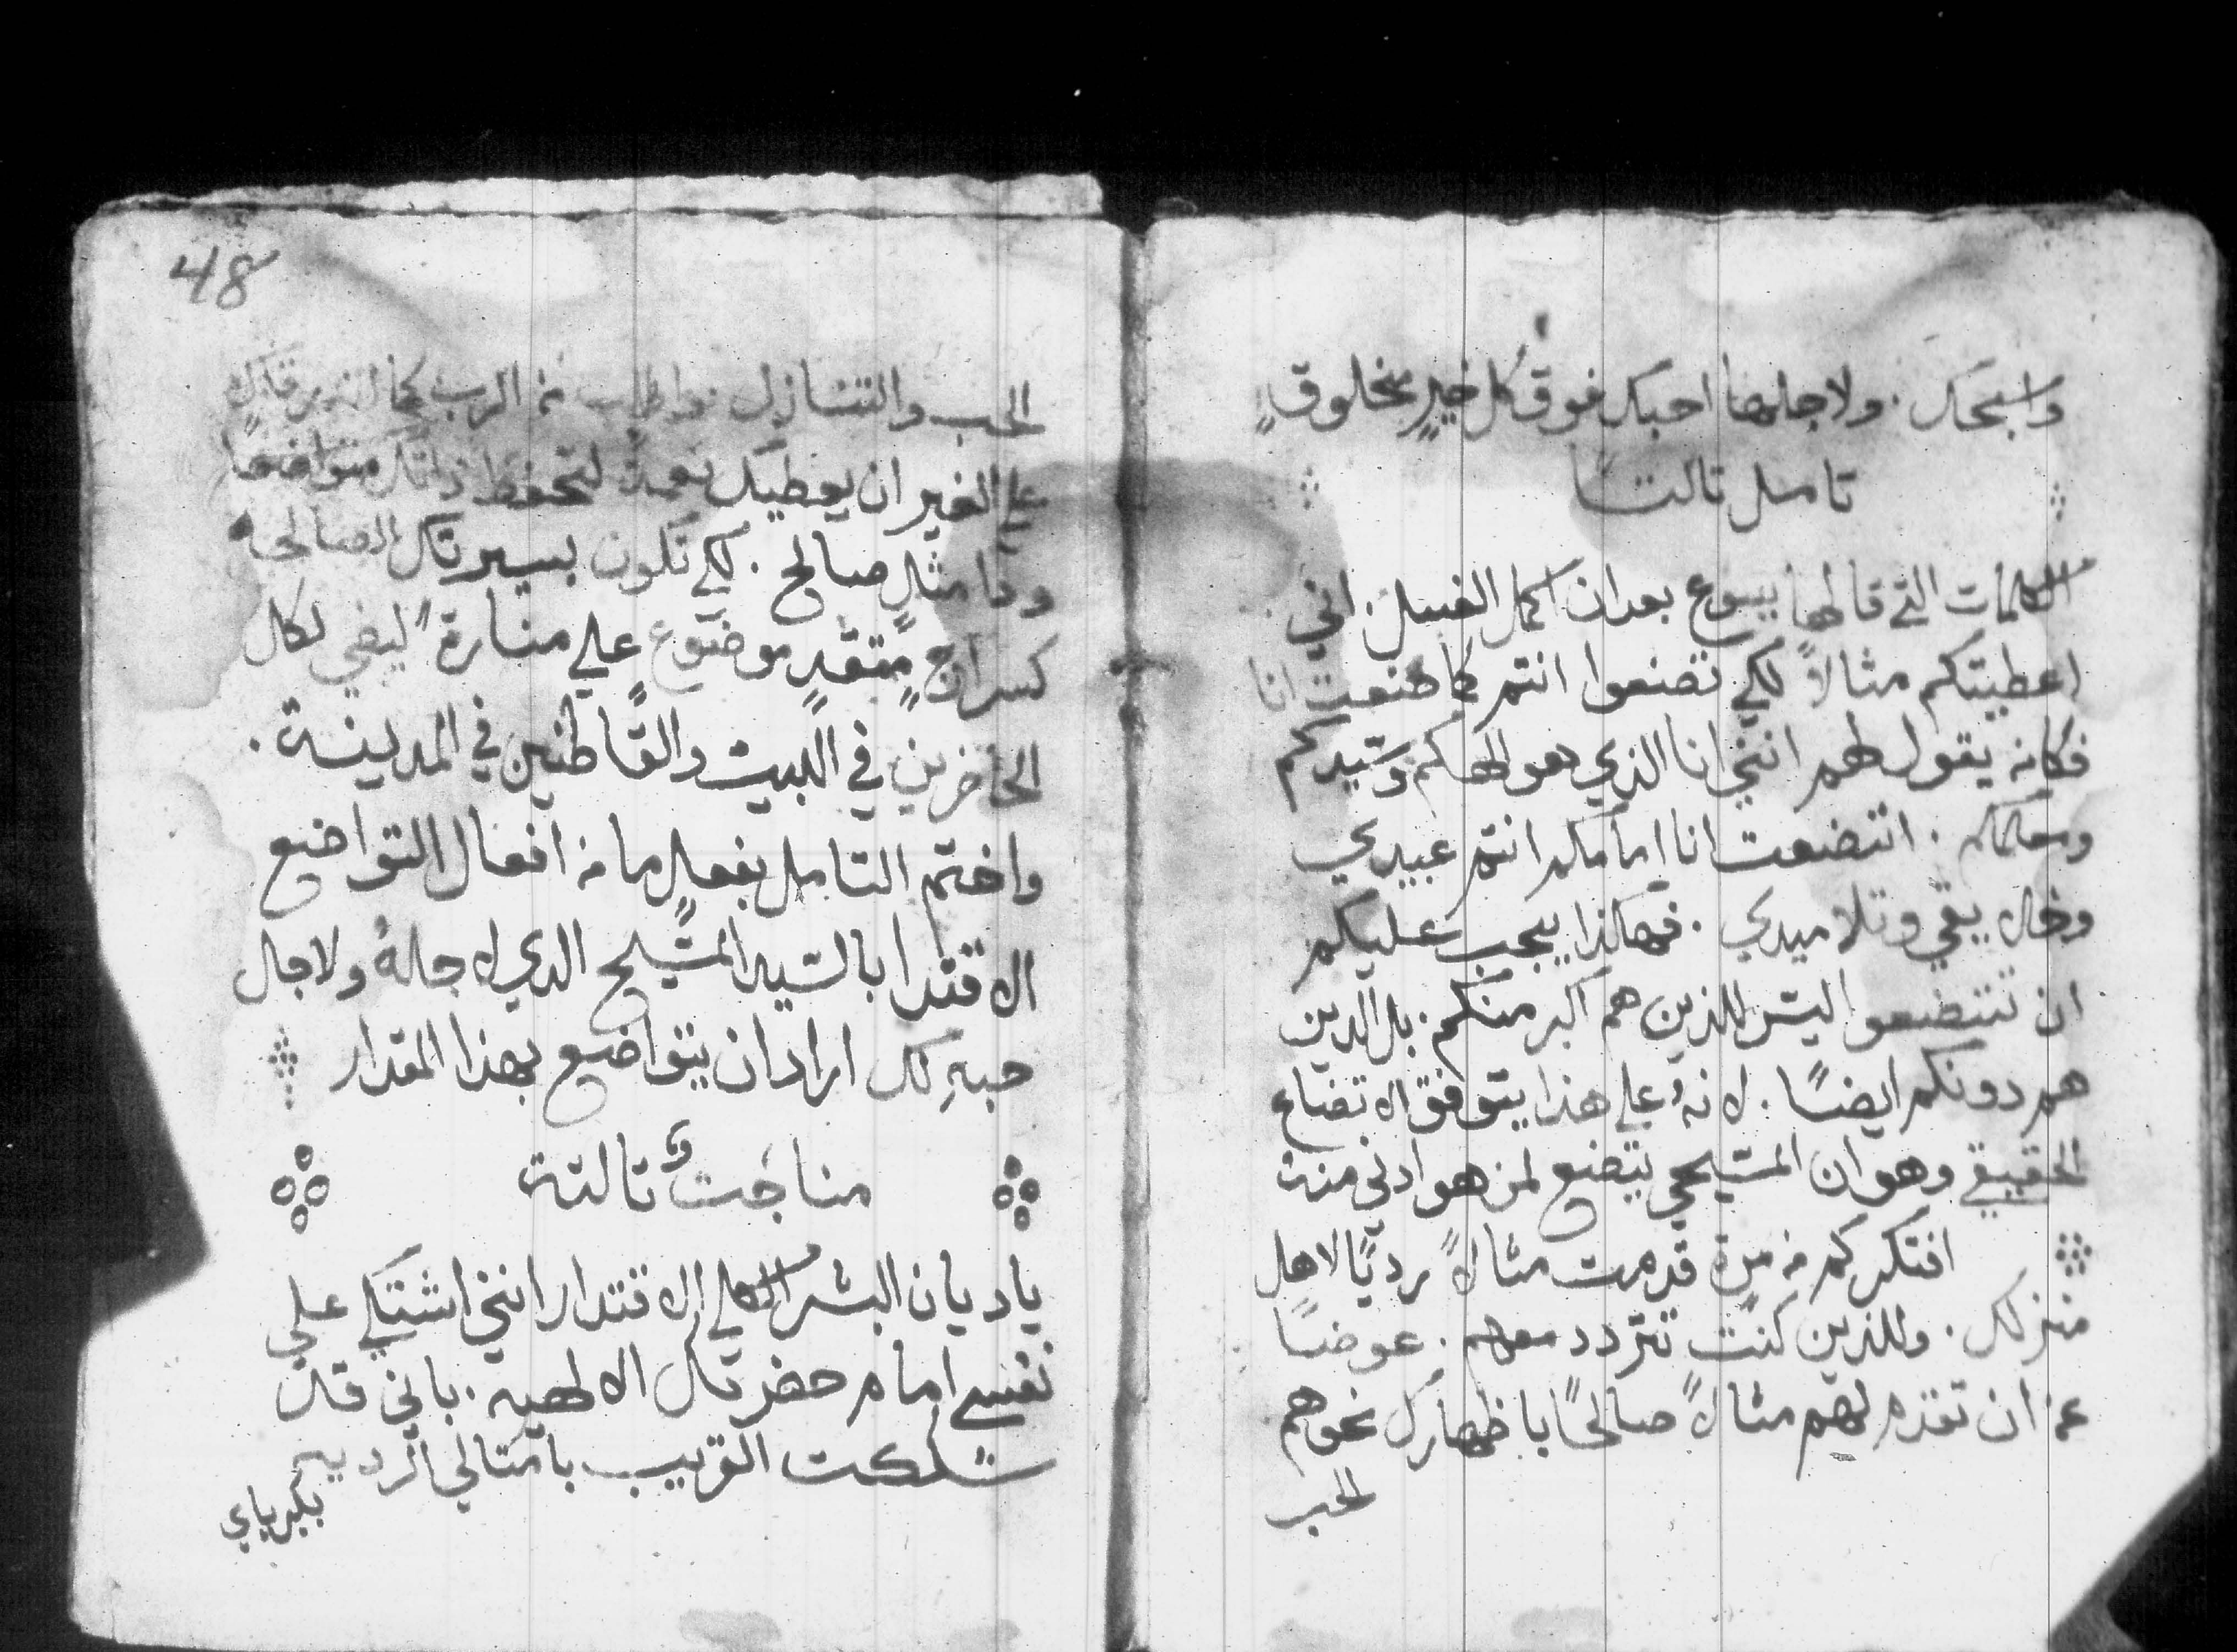 واسبحك . ولاجلها احبك فوق كل خيرٍ مخلوقٍ
تامل تالتًا
الكلمات التي قالها يسوع بعد ان اكمل الغسل . اني
اعطيتكم مثالاً لكي تصنعوا انتم كما صنعت انا
فكانه يقول لهم انني انا الذي هو الهكم وسيدكم
ومعلمكم . اتضعت انا امامكم انتم عبيدي
وخلايقي وتلاميدي . فهاكذا يجب عليكم
ان تتضعوا ليس للذين هم اكبر منكم . بل الذين
هم دونكم ايضًا . لانهُ علي هذا يتوقف الاتضاع
الحقيقي وهو ان المسيحي يتضع لمن هو ادنى منه
افتكر كم من مرة قدمت مثالاً رديًا لاهل
منزلك . وللذين كنت تتردد معهم . عوضًا
عن ان تقدم لهم مثالاً صالحًا باظهارك نحوهم
الحب
48
الحب والتنازل واطلب من الرب
علي الغير ان يعطيك نعمةً لتحفظ ذاتك متواضعًا
وذا مثلٍ صالح . لكي تكون بسيرتك الصالحه
كسراجٍ متقدٍ موضوع علي منارة ليضي لكل
الحاضرين في البيت والقاطنين في المدينة .
واختم التامل بفعلٍ ما من افعال التواضع
الاقتدا بالسيد المسيح الدي لاجلهُ ولاجل
حبهِ لك اراد ان يتواضع بهذا المقدار
مناجت تالتة
ياديان البشر الكلي الاقتدار انني اشتكي علي
نفسي امام حضرتك الالهية . باني قد
شككت القريب بامتالي الرديه
بكبرياي